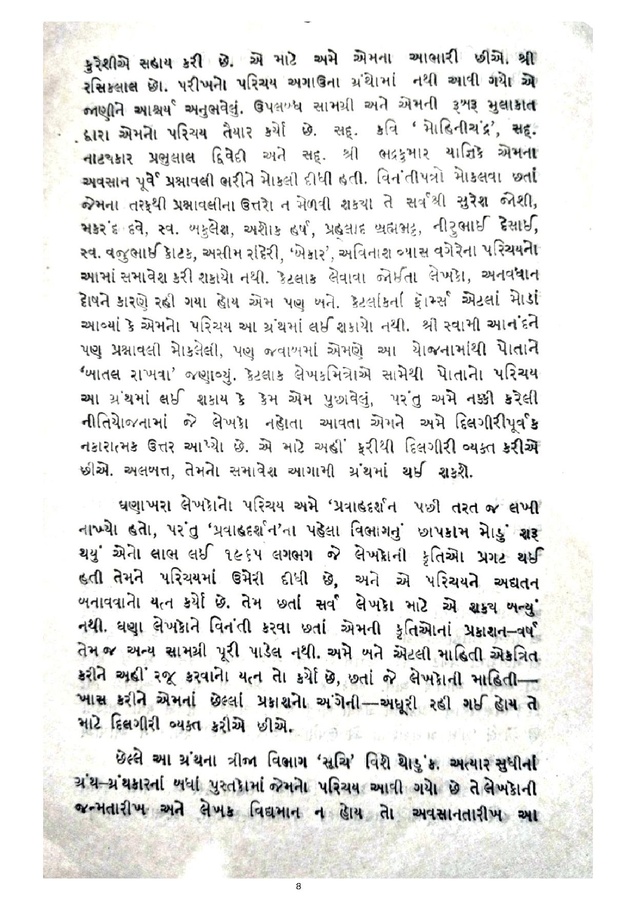 કુરેશીએ સહાય કરી છે. એ માટે અમે એમના આભારી છીએ. શ્રી
રસિકલાલ છો. પરીખનો પરિચય અગાઉના ગ્રંથોમાં નથી આવી ગયો એ
જાણીને આશ્ચર્ય અનુભવેલું. ઉપલબ્ધ સામગ્રી અને એમની રૂબરૂ મુલાકાત
દ્વારા એમનો પરિચય તૈયાર કર્યો છે. સદ્. કવિ ‘ મોહિનીચંદ્ર’, સદ્.
નાટ્યકાર પ્રભુલાલ દ્વિવેદી અને સદ્. શ્રી ભદ્રકુમાર યાજ્ઞિકે એમના
અવસાન પૂર્વે પ્રશ્નાવલી ભરીને મોકલી દીધી હતી. વિનંતીપત્રો મોકલવા છતાં
જેમના તરફથી પ્રશ્નાવલીના ઉત્તરો ન મેળવી શકાયા તે સર્વશ્રી સુરેશ જોશી,
મકરંદ દવે, સ્વ. બકુલેશ, અશોક હર્ષ, પ્રહ્‌લાદ બ્રહ્મભટ્ટ, નીરુભાઈ દેસાઈ,
સ્વ. વજુભાઈ કોટક, અસીમ રાંદેરી, ‘બેકાર’, અવિનાશ વ્યાસ વગેરેના પરિચયનો
આમાં સમાવેશ કરી શકાયો નથી. કેટલાક લેવાવા જોઈતા લેખકો, અનવધાન
દોષને કારણે રહી ગયા હોય એમ પણ બને. કેટલાંકનાં ફૉર્મ્સ એટલાં મોડાં
આવ્યાં કે એમનો પરિચય આ ગ્રંથમાં લઈ શકાયો નથી. શ્રી સ્વામી આનંદને
પણ પ્રશ્નાવલી મોકલેલી, પણ જવાબમાં એમણે આ યોજનામાંથી પોતાને
‘બાતલ રાખવા’ જણાવ્યું. કેટલાક લેખકમિત્રોએ સામેથી પોતાનો પરિચય
આ ગ્રંથમાં લઈ શકાય કે કેમ એમ પુછાવેલું, પરંતુ અમે નક્કી કરેલી
નીતિયોજનામાં જે લેખકો નહોતા આવતા એમને અમે દિલગીરીપૂર્વક
નકારાત્મક ઉત્તર આપ્યો છે. એ માટે અહીં ફરીથી દિલગીરી વ્યક્ત કરીએ
છીએ. અલબત્ત, તેમનો સમાવેશ આગામી ગ્રંથમાં થઈ શકશે.
ઘણાખરા લેખકોનો પરિચય અમે ‘પ્રવાહદર્શન પછી તરત જ લખી
નાખ્યો હતો, પરંતુ ‘પ્રવાહદર્શન’ના પહેલા વિભાગનું છાપકામ મોડું શરૂ
થયું એનો લાભ લઈ ૧૯૬૫ લગભગ જે લેખકોની કૃતિઓ પ્રગટ થઈ
હતી તેમને પરિચયમાં ઉમેરી દીધી છે, અને એ પરિચયને અદ્યતન
બનાવવાનો યત્ન કર્યો છે. તેમ છતાં સર્વ લેખકો માટે એ શક્ય બન્યું
નથી. ઘણા લેખકોને વિનંતી કરવા છતાં એમની કૃતિઓનાં પ્રકાશન–વર્ષ
તેમ જ અન્ય સામગ્રી પૂરી પાડેલ નથી. અમે બને એટલી માહિતી એકત્રિત
કરીને અહીં રજૂ કરવાનો યત્ન તો કર્યો છે, છતાં જે લેખકોની માહિતી—
ખાસ કરીને એમનાં છેલ્લાં પ્રકાશનો અંગેની—અધૂરી રહી ગઈ હોય તે
માટે દિલગીરી વ્યક્ત કરીએ છીએ.
છેલ્લે આ ગ્રંથના ત્રીજા વિભાગ ‘સૂચિ’ વિશે થોડુંક. અત્યાર સુધીનાં
ગ્રંથ–ગ્રંથકારનાં બધાં પુસ્તકોમાં જેમનો પરિચય આવી ગયો છે તે લેખકોની
જન્મતારીખ અને લેખક વિદ્યમાન ન હોય તો અવસાનતારીખ આ
8